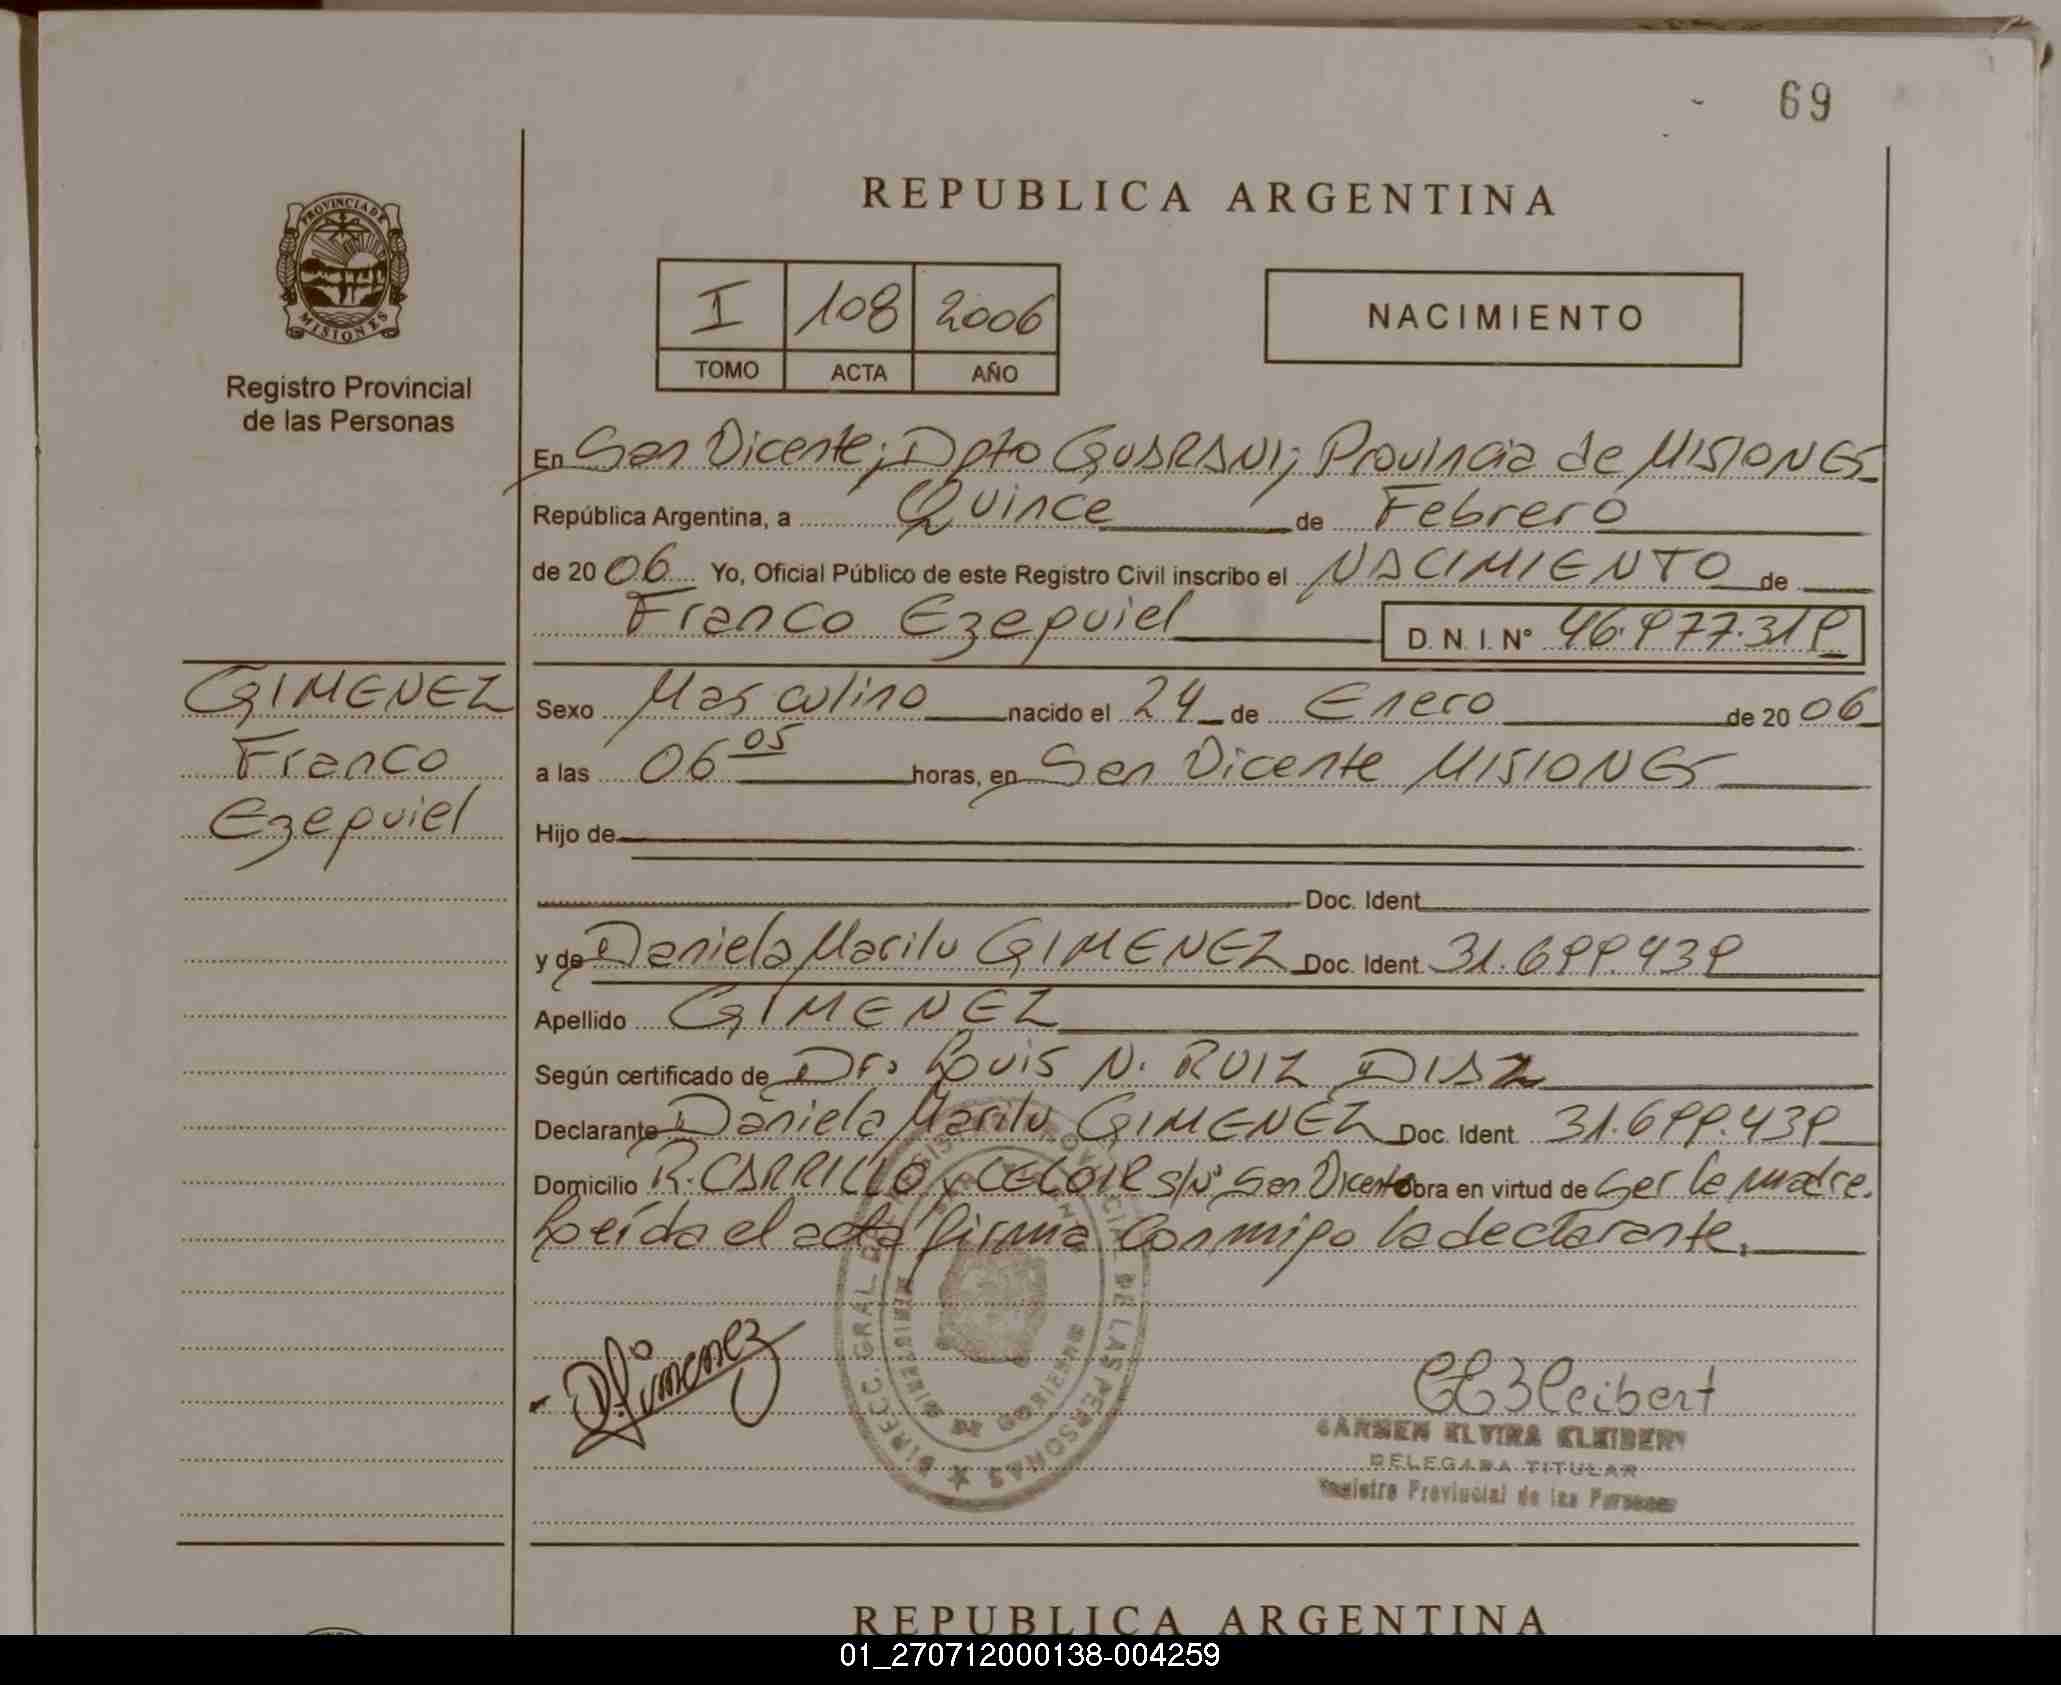 69
REPUBLICA ARGENTINA
PROVINCIA DE
MISIONES
Registro Provincial
de las Personas
I 108 2006
TOMO ACTA AÑO
NACIMIENTO
En San Vicente; Dpto GUARANI; Provincia de MISIONES
República Argentina, a Quince de Febrero
de 2006 Yo, Oficial Público de este Registro Civil inscribo el NACIMIENTO de
Franco Ezequiel D. N. I. Nº 46.977.319
GIMENEZ
Franco
Ezequiel
Sexo Masculino nacido el 24 de Enero de 2006
a las 06 05 horas, en San Vicente MISIONES
Hijo de
Doc. Ident.
y de Daniela Marilu GIMENEZ Doc. Ident. 31.699.439
Apellido GIMENEZ
Según certificado de Dr. Louis N. RUIZ DIAZ
Declarante Daniela Marilu GIMENEZ Doc. Ident. 31.699.439
Domicilio R. CARRILLO y LELOIR S/Nº San Vicente Obra en virtud de Ser la madre.
Leída el acta firma Conmigo la declarante.
D. Gimenez
DIRECC. GRAL. DEL REGISTRO PROVINCIAL DE LAS PERSONAS
DE GOBIERNO
CEKleibert
CARMEN ELVIRA KLEIBERT
DELEGADA TITULAR
Registro Provincial de las Personas
REPUBLICA ARGENTINA
01_270712000138-004259